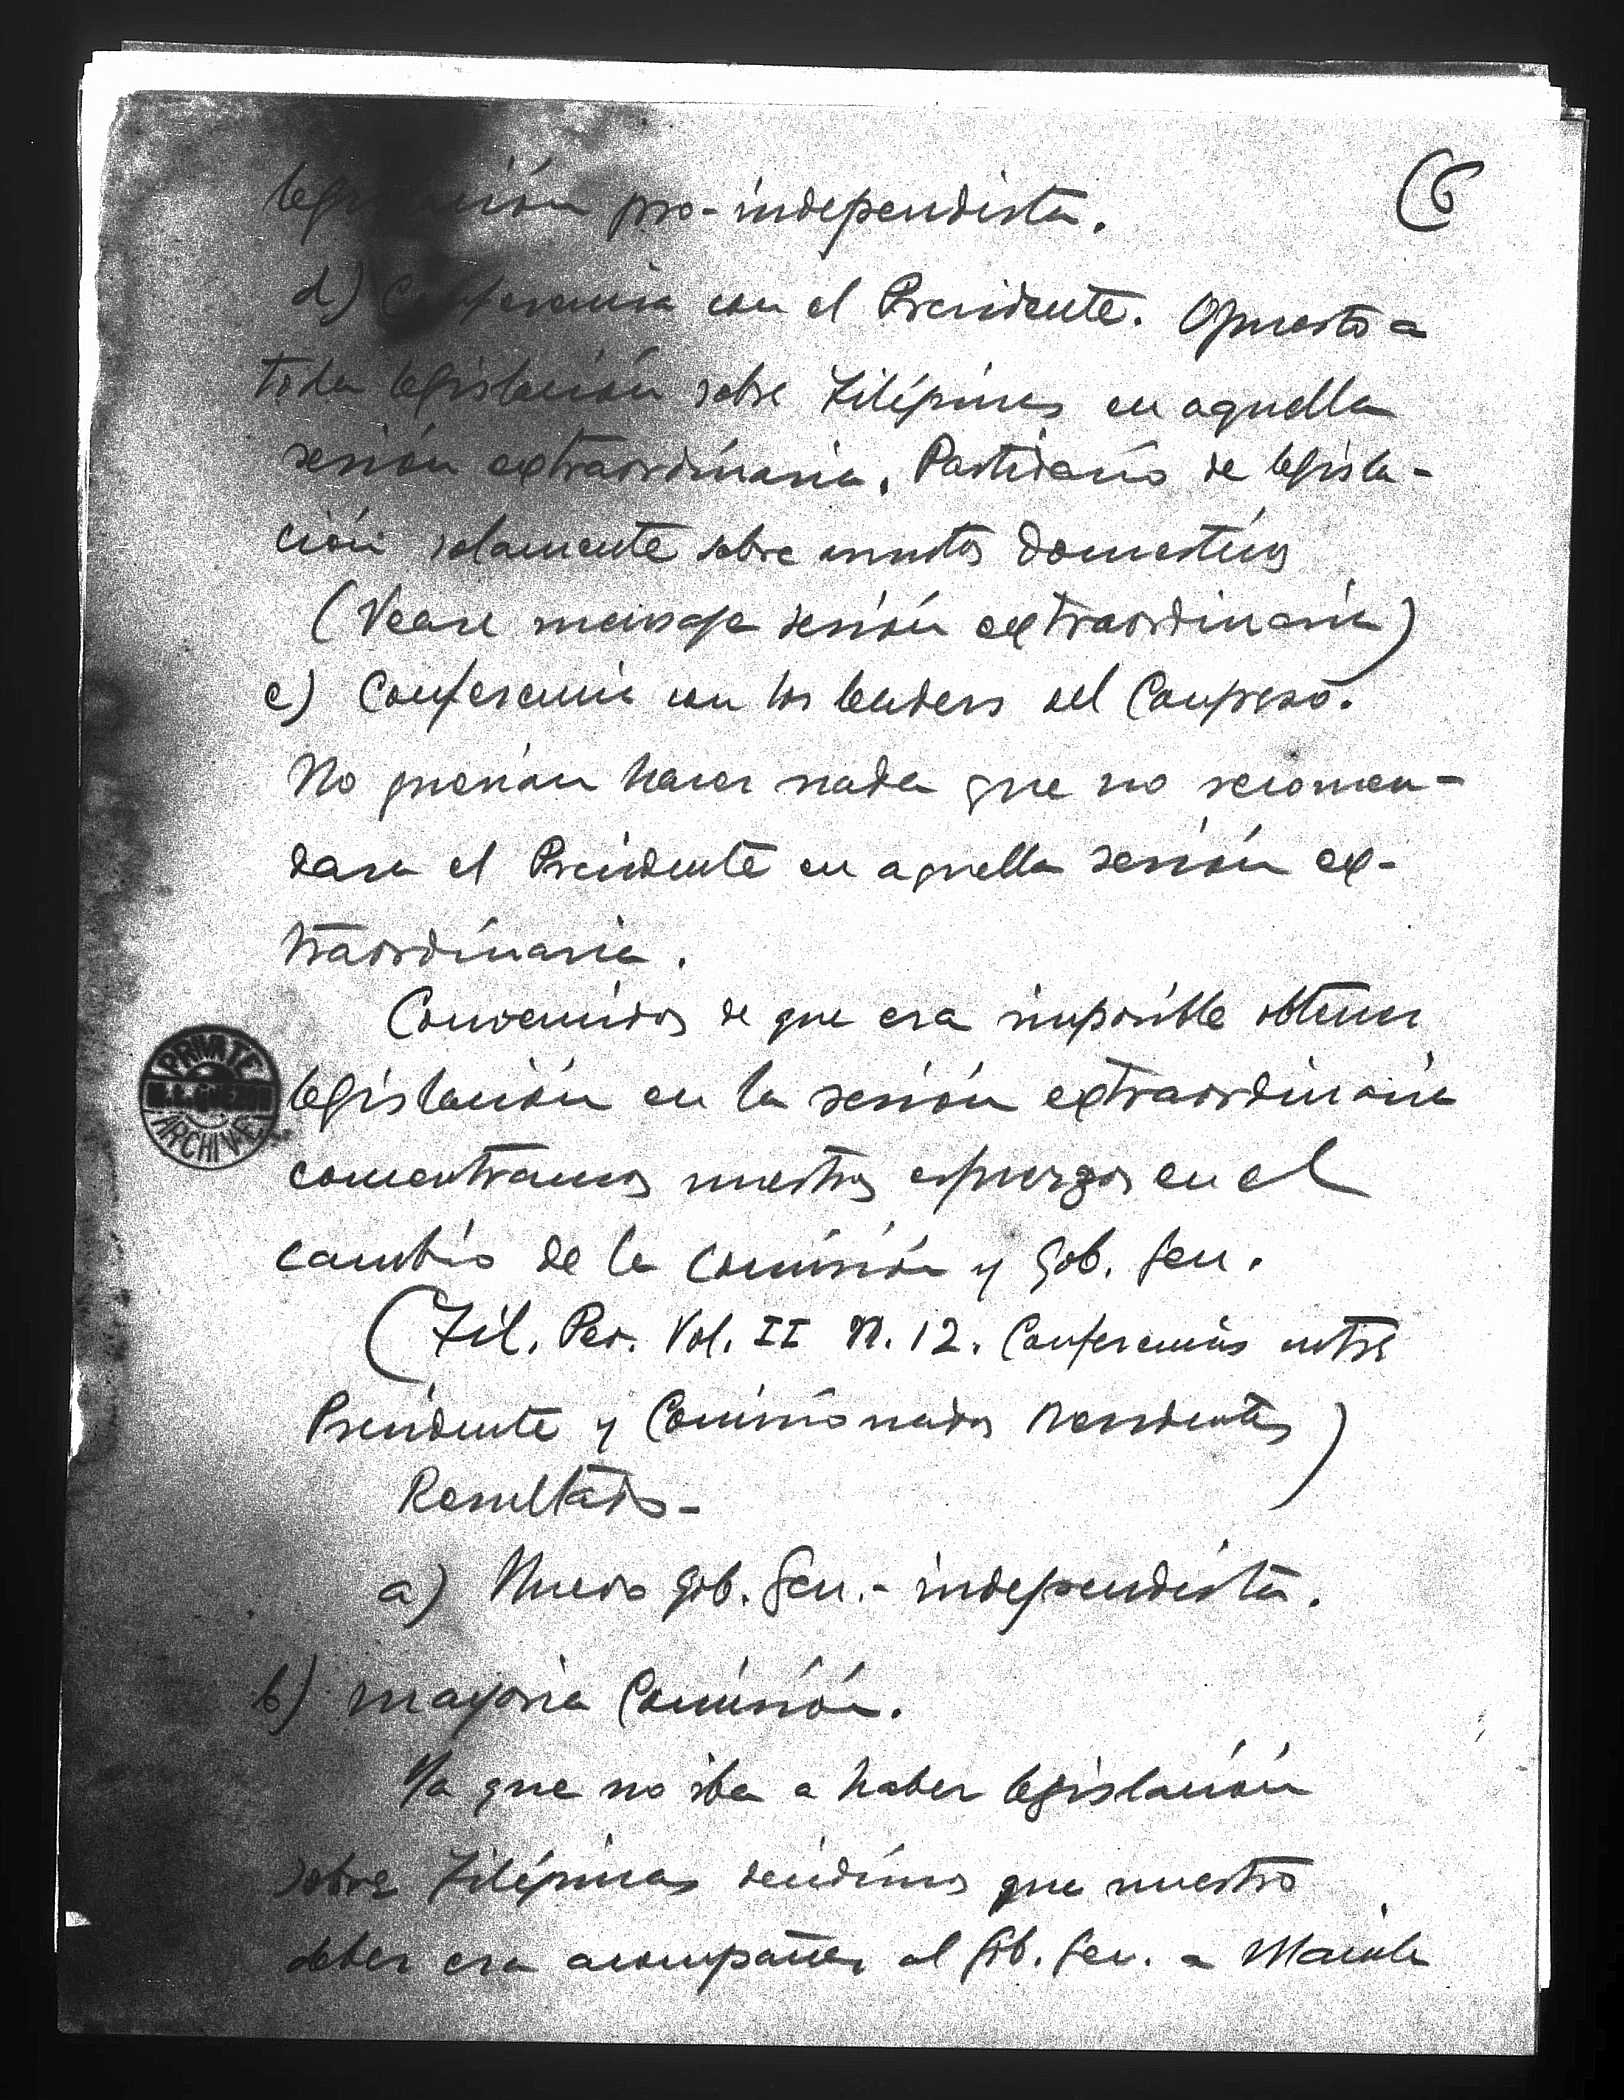 (6
legislación pro-independista.
d) Conferencia con el Presidente. Opuesto a
toda legislación sobre Filipinas en aquella
sesión extraordinaria. Partidario de legisla-
ción solamente sobre asuntos domesticos
(Vease mensaje sesión extraordinaria)
e) Conferencia con los leaders del Congreso.
No querian hacer nada que no recomen-
dara el Presidente en aquella sesión ex-
traordinaria.
Convencidos de que era imposible obtener
legislación en la sesión extraordinaria
concentramos nuestros esfuerzos en el
cambio de la Comisión y Gob. Gen.
(Fil. Peo. Vol. II N. 12. Conferencias entre
Presidente y Comisionados Residentes)
Resultado-
a) Nuevo Gob. Gen. - independista.
b) mayoria Comisión.
Ya que no iba a haber legislación
sobre Filipinas decidimos que nuestro
deber era acompañar al Gob. Gen. a Manila
PRIVATE
M.L. QUEZON
ARCHIVE